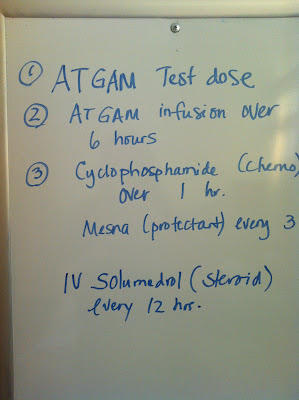 ① ATGAM Test dose
② ATGAM infusion over
6 hours
③ Cyclophosphamide (chemo)
over 1 hr.
Mesna (protectant) every 3
IV Solumedrol (steroid)
every 12 hrs.